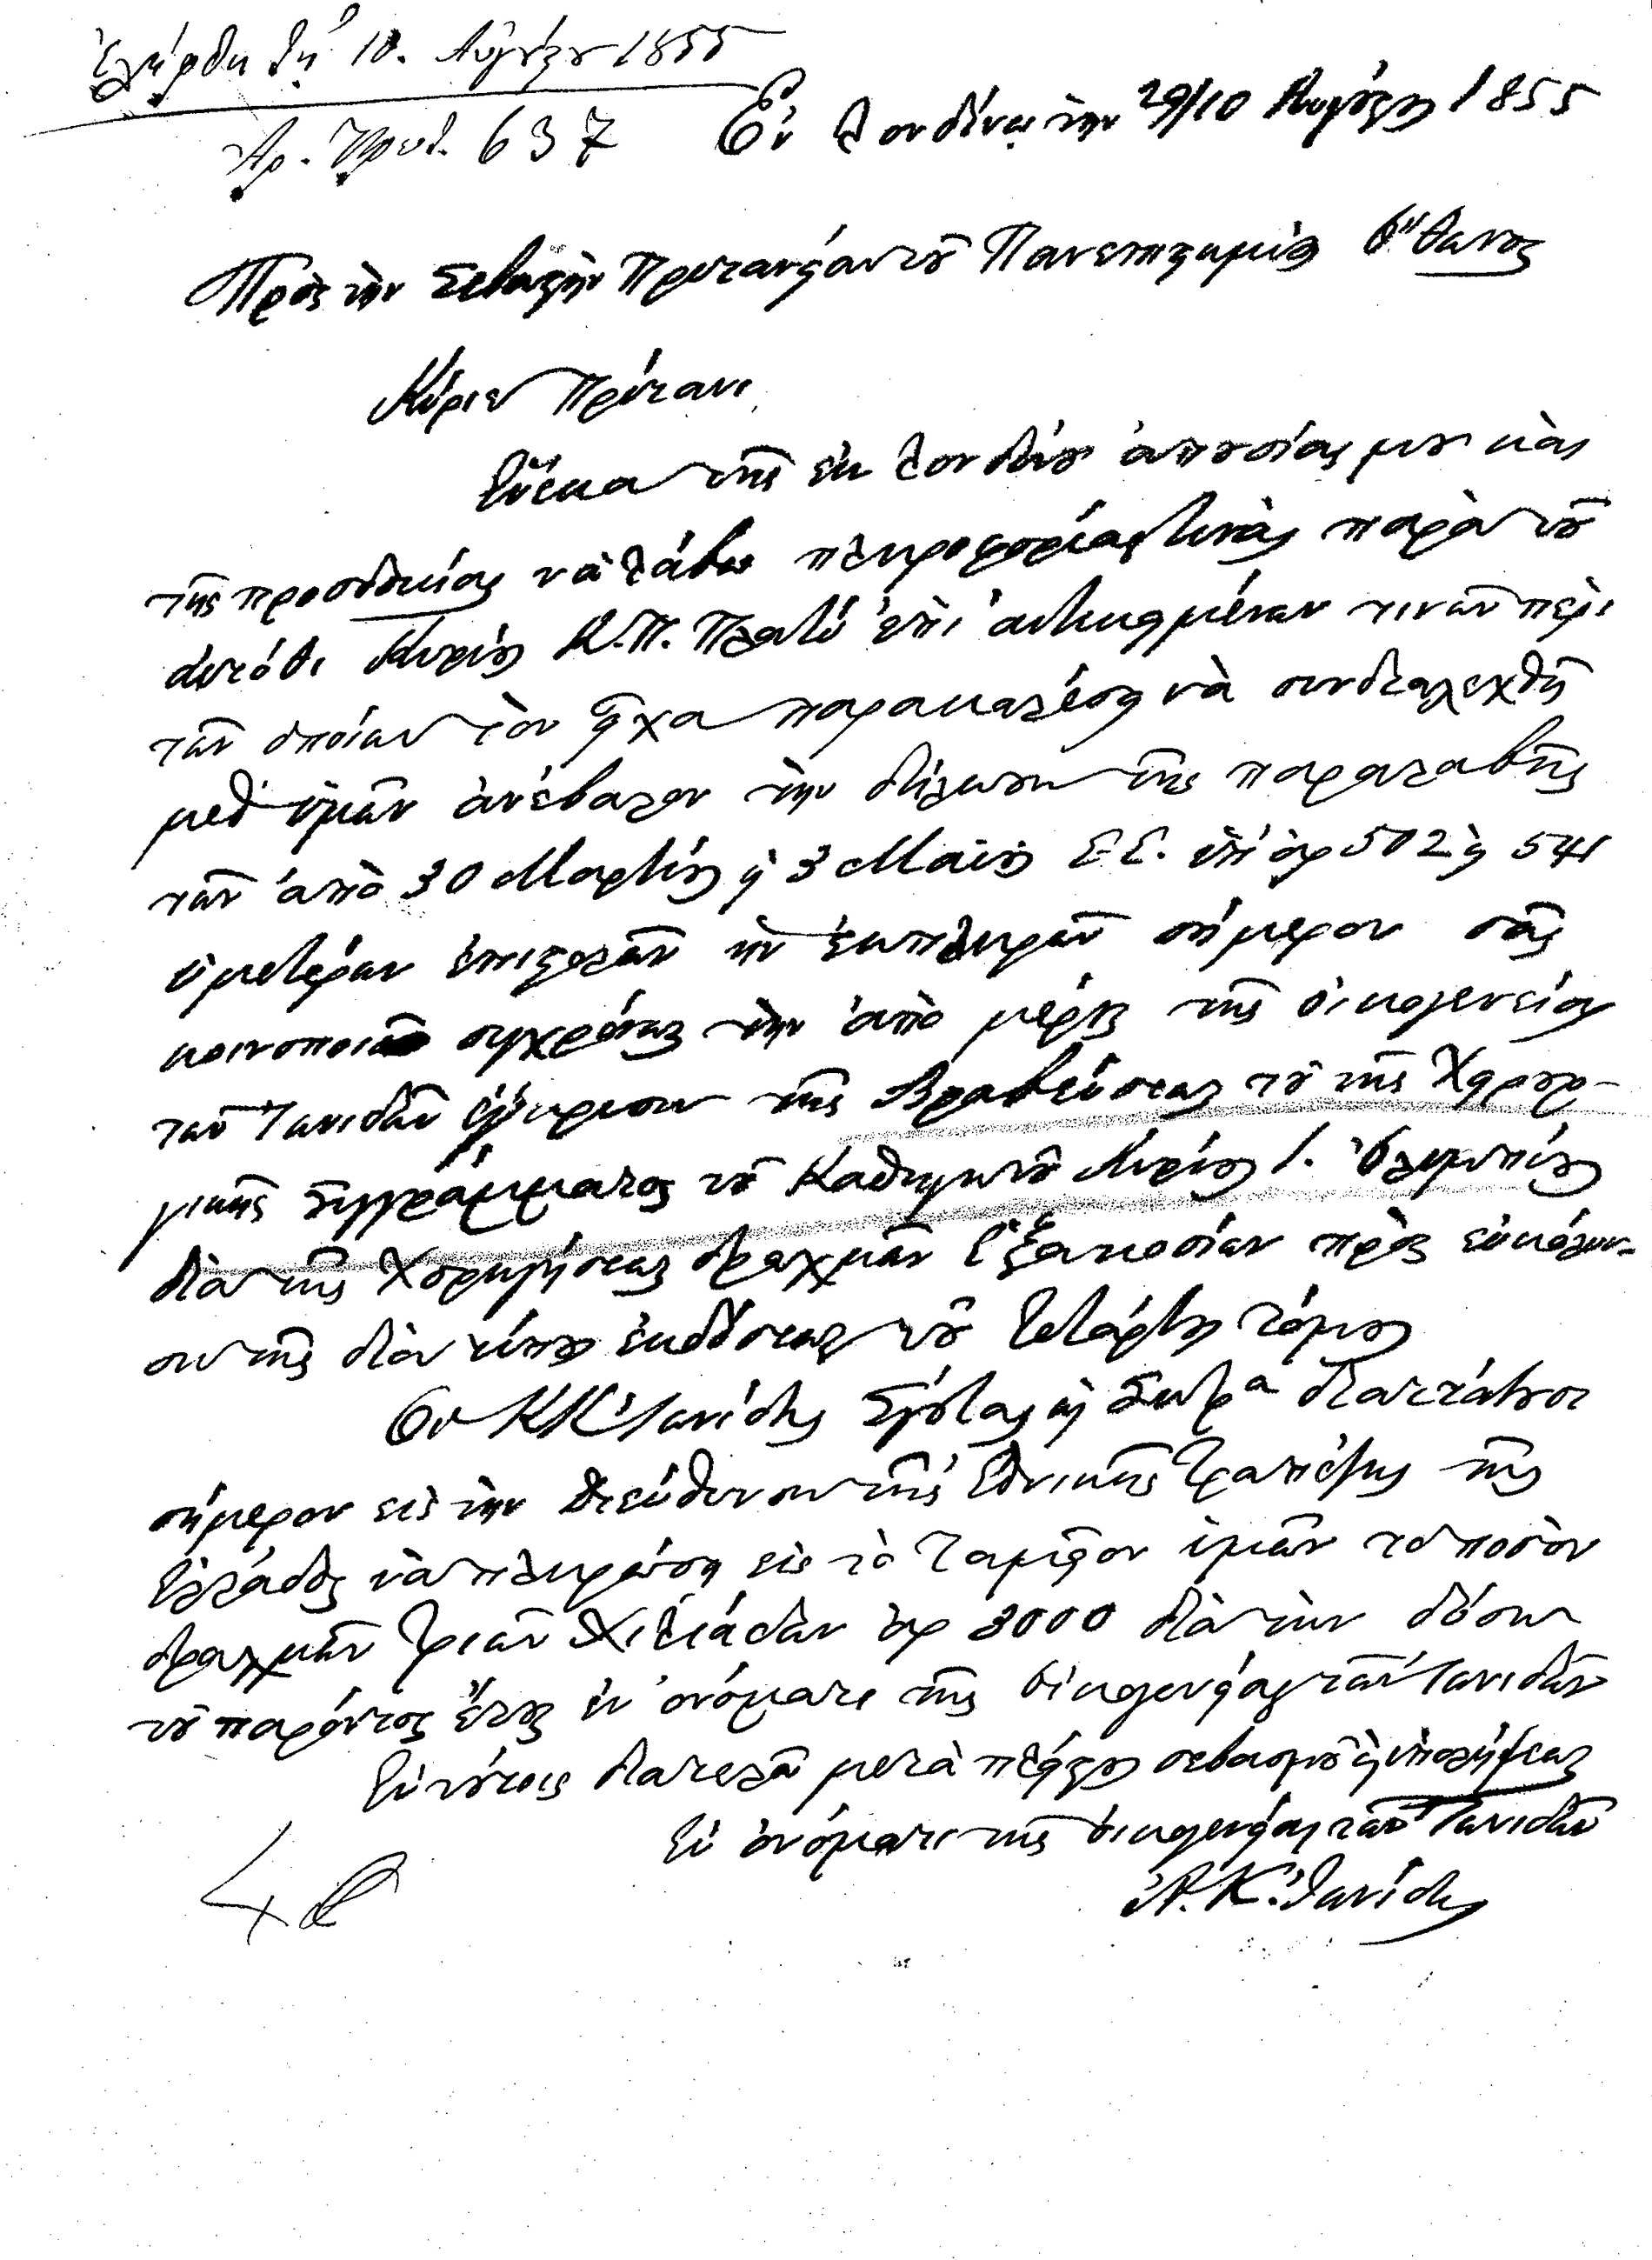 Ἐλήφθη τῇ 10. Αὐγούστου 1855
Ἀρ. Πρωτ. 637
Ἐν Λονδίνῳ τὴν 29/10 Αυγούστου 1855
Πρὸς τὴν Σεβαστὴν Πρυτανείαν τοῦ Πανεπιστημίου Ὄθωνος
Κύριε Πρύτανι
Ἕνεκα τῆς ἐκ Λονδίνου ἀπουσίας μου καὶ
τῆς προσδοκίας νὰ λάβω πληροφορίας τινὰς παρὰ τοῦ
αυτόθι Κυρίου Π. Πλατύ ἐπὶ αντικειμένων τινων περὶ
τῶν ὁποίων τὸν εἶχα παρακαλέσῃ νὰ συνδιαλεχθῇ
μεθ' ὑμῶν ἀνέβαλον τὴν δήλωσιν τῆς παραλαβῆς
τῶν ἀπὸ 30 Μαρτίου ἢ 3 Μαΐου Ε.Ε. ὑπ' ἀρ 502 ἢ 541
ὑμετέρων ἐπιστολῶν ἣν ἐκπληρῶν σήμερον σᾶς
κοινοποιῶ συγχρόνως τὴν ἀπὸ μέρους τῆς οἰκογενείας
τῶν Ἰωνιδῶν ἔγκρισιν τῆς Βραβεύσεως τοῦ τῆς Χειρουρ-
γικῆς Συγγράμματος τοῦ Καθηγητοῦ Κυρίου Ι. Ὀλυμπίου
διὰ τῆς Χορηγήσεως δραχμῶν Ἑξακοσίων πρὸς εὐκόλυν-
σιν τῆς διὰ τύπου ἐκδόσεως τοῦ Τετάρτου τόμου
Οἱ ΚΚ Ἰωνίδης Σγούτας καὶ διαττάττουσι
σήμερον εἰς τὴν Διεύθυνσιν τῆς Ἐθνικῆς Τραπέζης τῆς
Ἑλλάδος νὰ πληρώσῃ εἰς τὸ Ταμεῖον ὑμῶν τὸ ποσὸν
δραχμῶν Τριῶν Χιλιάδων δρ 3000 διὰ τὴν δόσιν
τοῦ παρόντος ἔτους ἐν ὀνόματι τῆς οἰκογενείας τῶν Ἰωνιδῶν
Ἐν τούτοις διατελῶ μετὰ πλείστου σεβασμοῦ καὶ ὑπολήψεως
Ἐν ὀνόματι τῆς οἰκογενείας τῶν Ἰωνιδῶν
Α. Κ. Ἰωνίδης